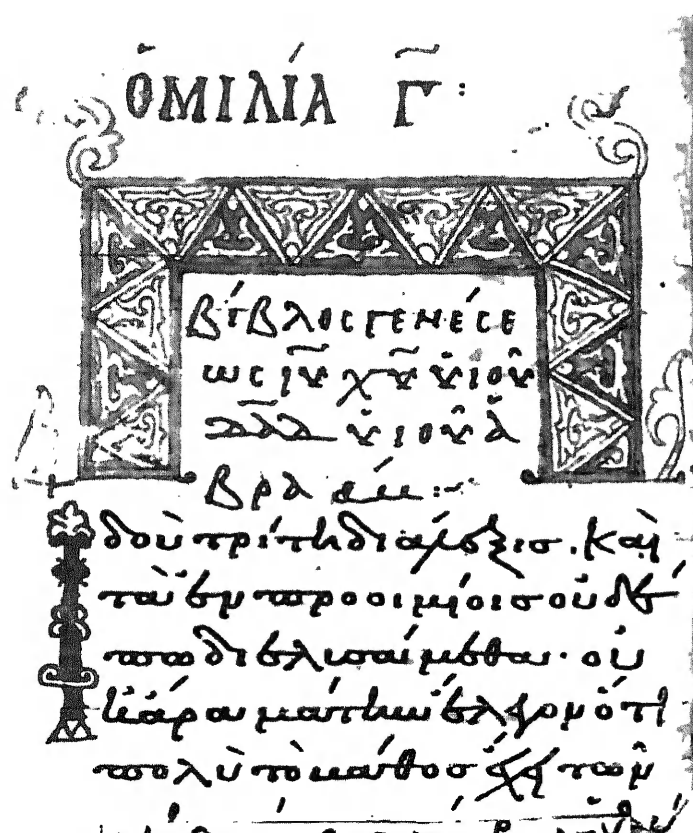 ὉΜΙΛΊΑ Γ̅ :
Βίβλος γενέσε
ως ι̅υ̅ χ̅υ̅ υἱοῦ
δ̅α̅δ̅ υἱοῦ ἀ
βραάμ :~
Ἰδοὺ τρίτη διάλεξισ. καὶ
τὰ ἐν προοιμίοισ οὐδέ
πω διελυσάμεθα· οὐ
κ ἄρα μάτην ἔλεγον ὅτι
πολὺ τὸ βάθοσ ἐστὶ τῶν